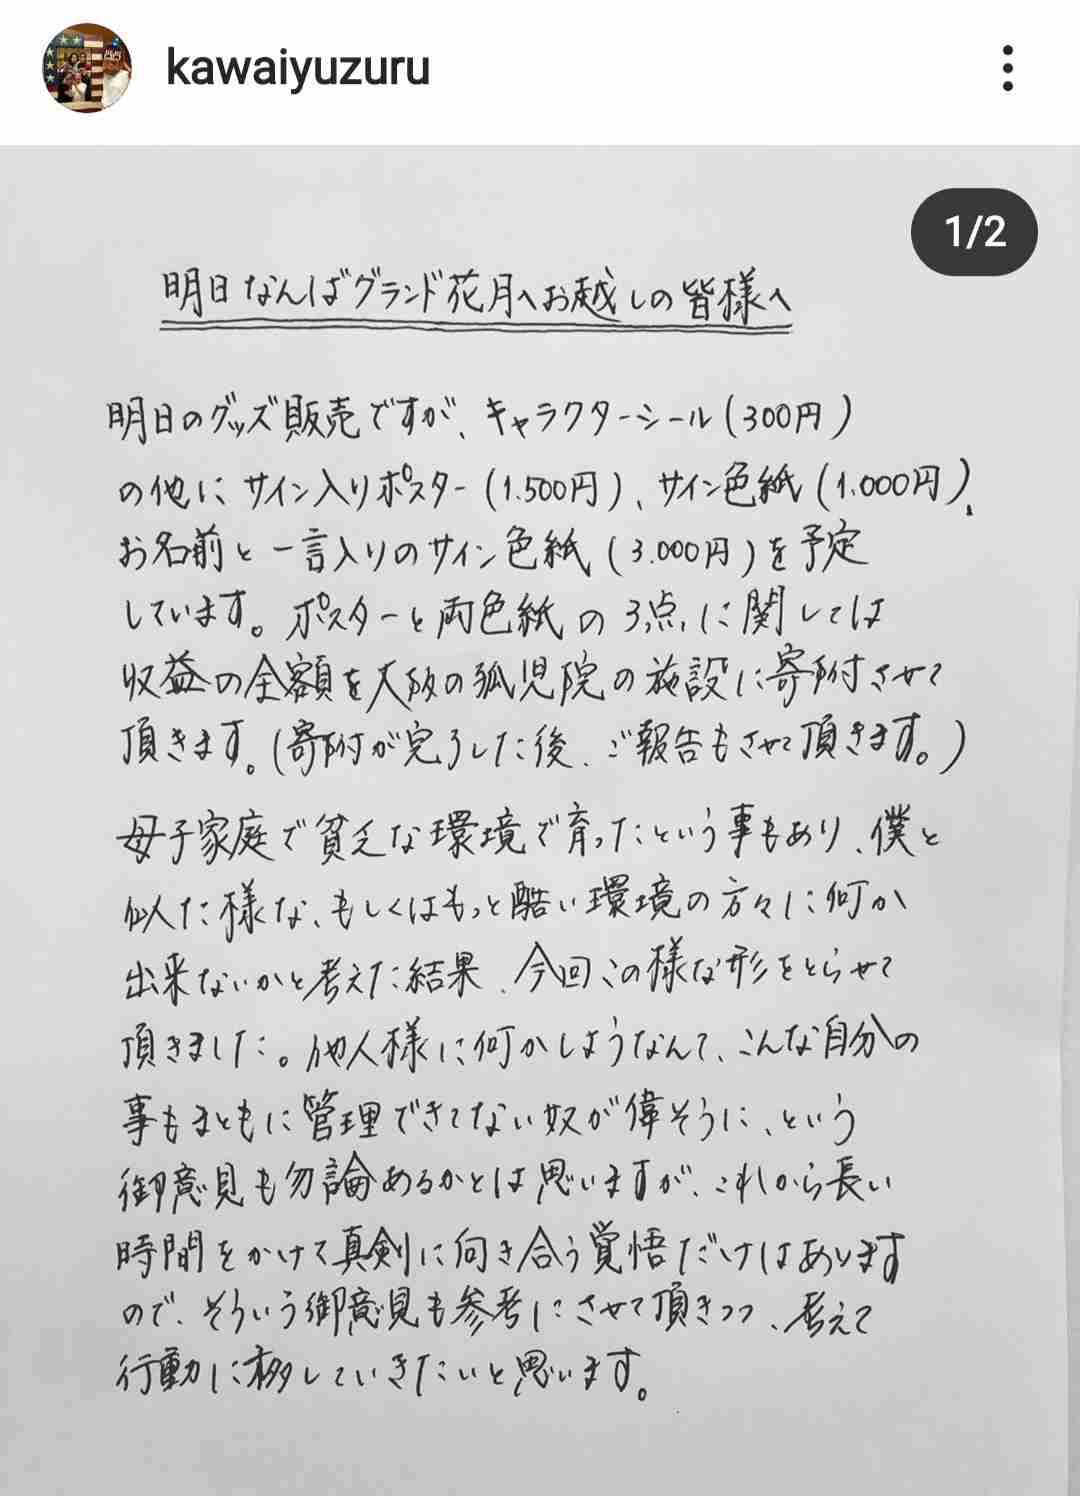 kawaiyuzuru
1/2
明日なんばグランド花月へお越しの皆様へ
明日のグッズ販売ですが、キャラクターシール(300円)
の他にサイン入りポスター(1.500円)、サイン色紙(1.000円)、
お名前と一言入りのサイン色紙(3.000円)を予定
しています。ポスターと両色紙の3点に関しては
収益の全額を大阪の孤児院の施設に寄附させて
頂きます。(寄附が完了した後、ご報告もさせて頂きます。)
母子家庭で貧乏な環境で育ったという事もあり、僕と
似た様な、もしくはもっと酷い環境の方々に何か
出来ないかと考えた結果、今回この様な形をとらせて
頂きました。他人様に何かしようなんて、こんな自分の
事もまともに管理できてない奴が偉そうに、という
御意見も勿論あるかとは思いますが、これから長い
時間をかけて真剣に向き合う覚悟だけはあります
ので、そういう御意見も参考にさせて頂きつつ、考えて
行動に移していきたいと思います。